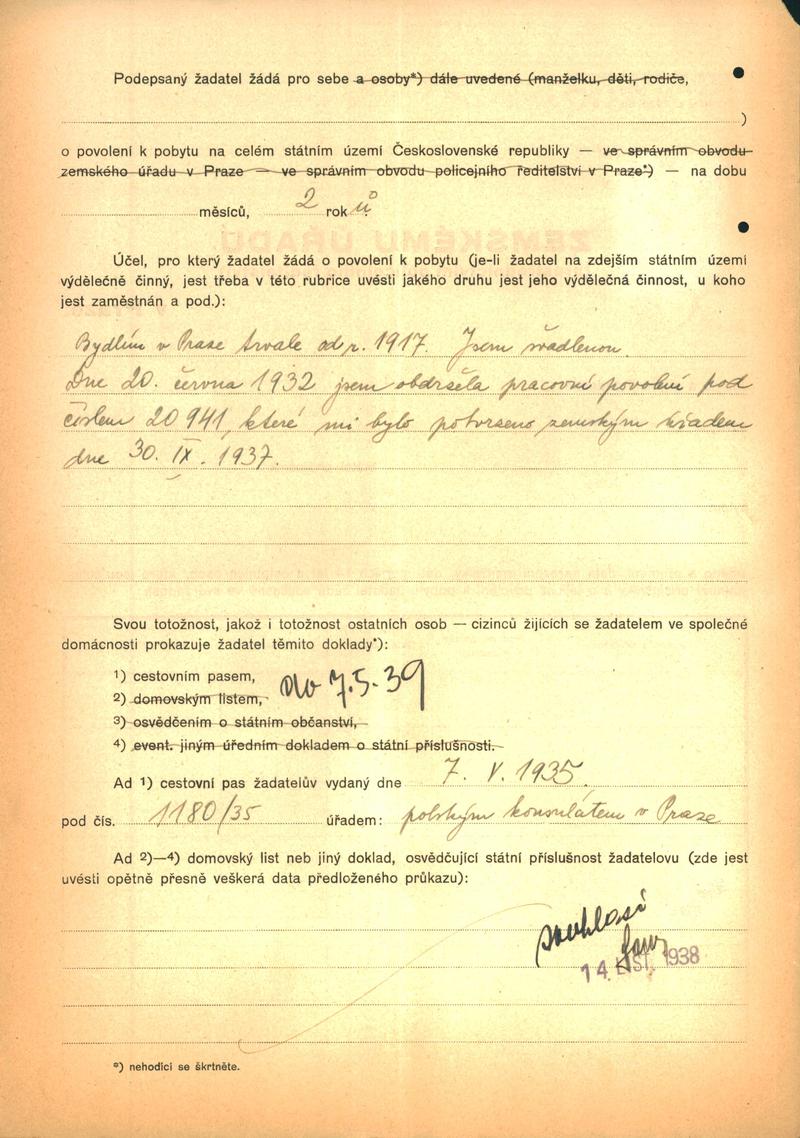 Podepsaný žadatel žádá pro sebe a osoby*) dále uvedené (manželku, děti, rodiče,
)
o povolení k pobytu na celém státním území Československé republiky — ve správním obvodu
zemského úřadu v Praze — ve správním obvodu policejního ředitelství v Praze*) — na dobu
měsíců, 2 rok ů
ZEMSKÉMU ÚŘADU
Účel, pro který žadatel žádá o povolení k pobytu (je-li žadatel na zdejším státním území
výdělečně činný, jest třeba v této rubrice uvésti jakého druhu jest jeho výdělečná činnost, u koho
jest zaměstnán a pod.):
Bydlím v Praze trvale od r. 1917. Jsem švadlenou.
Dne 20. června 1932 jsem obdržela pracovní povolení pod
číslem 20941, které mi bylo potvrzeno zemským úřadem
dne 30. IX. 1937.
Svou totožnost, jakož i totožnost ostatních osob — cizinců žijících se žadatelem ve společné
domácnosti prokazuje žadatel těmito doklady*):
1) cestovním pasem,
2) domovským listem, do 7.5.39
3) osvědčením o státním občanství,
4) event. jiným úředním dokladem o státní příslušnosti.
Ad 1) cestovní pas žadatelův vydaný dne 7. V. 1935.
pod čís. 1180/35 úřadem: polským konsulátem v Praze
Ad 2)—4) domovský list neb jiný doklad, osvědčující státní příslušnost žadatelovu (zde jest
uvésti opětně přesně veškerá data předloženého průkazu):
souhlasí
14. LIST. 1938
*) nehodící se škrtněte.